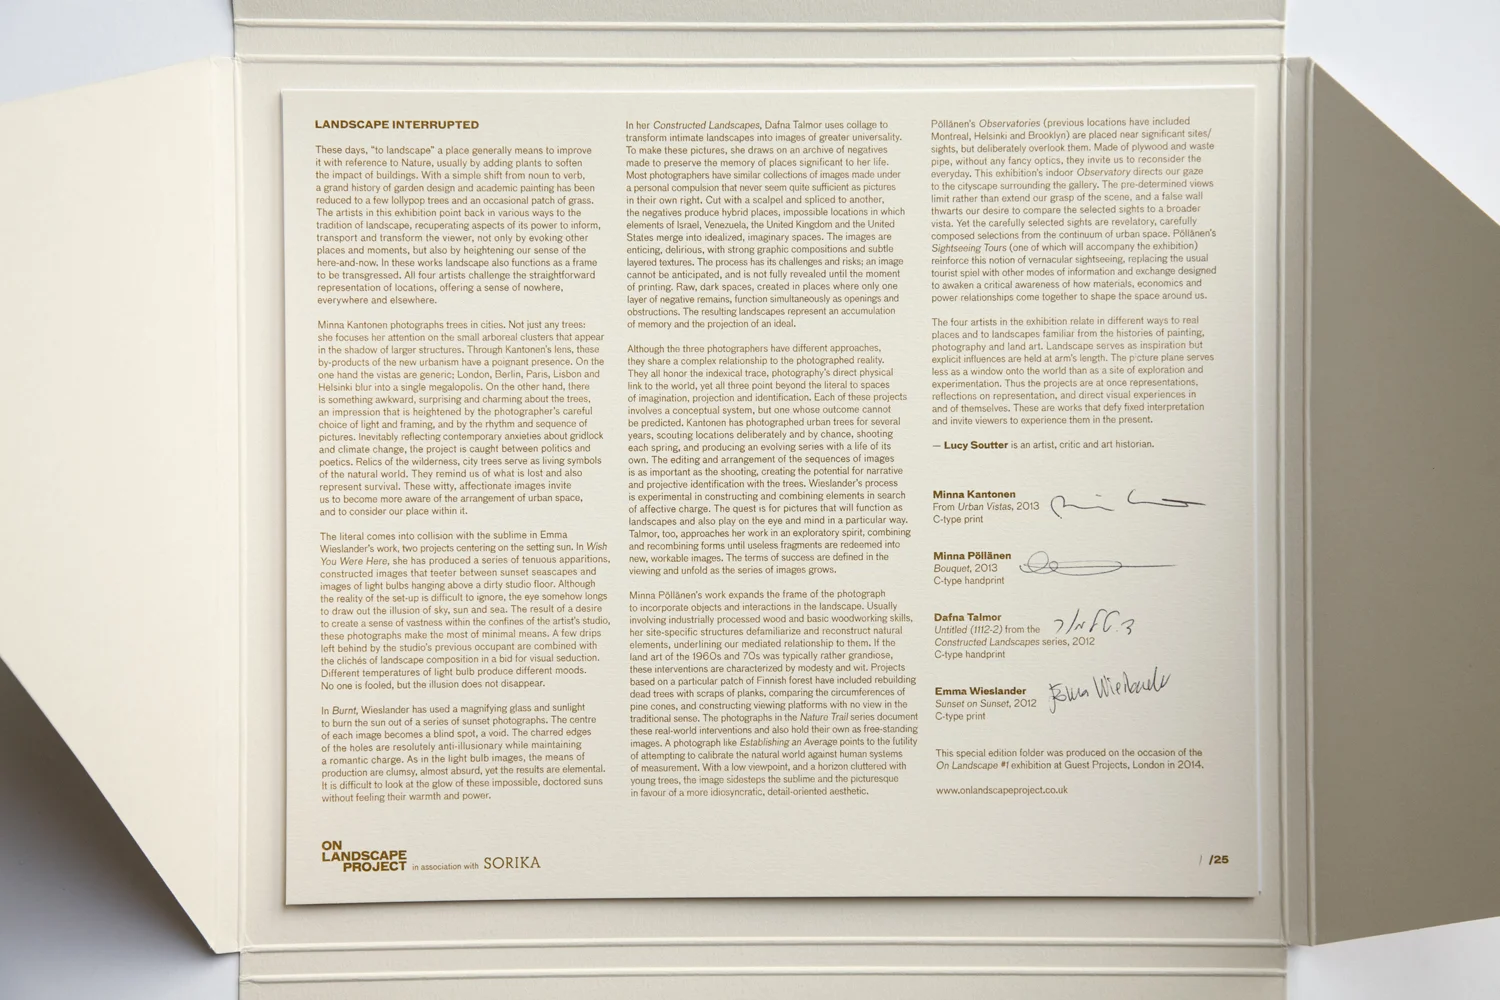 LANDSCAPE INTERRUPTED
These days, "to landscape" a place generally means to improve
it with reference to Nature, usually by adding plants to soften
the impact of buildings. With a simple shift from noun to verb,
a grand history of garden design and academic painting has been
reduced to a few lollypop trees and an occasional patch of grass.
The artists in this exhibition point back in various ways to the
tradition of landscape, recuperating aspects of its power to inform,
transport and transform the viewer, not only by evoking other
places and moments, but also by heightening our sense of the
here-and-now. In these works landscape also functions as a frame
to be transgressed. All four artists challenge the straightforward
representation of locations, offering a sense of nowhere,
everywhere and elsewhere.
Minna Kantonen photographs trees in cities. Not just any trees:
she focuses her attention on the small arboreal clusters that appear
in the shadow of larger structures. Through Kantonen's lens, these
by-products of the new urbanism have a poignant presence. On the
one hand the vistas are generic; London, Berlin, Paris, Lisbon and
Helsinki blur into a single megalopolis. On the other hand, there
is something awkward, surprising and charming about the trees,
an impression that is heightened by the photographer's careful
choice of light and framing, and by the rhythm and sequence of
pictures. Inevitably reflecting contemporary anxieties about gridlock
and climate change, the project is caught between politics and
poetics. Relics of the wilderness, city trees serve as living symbols
of the natural world. They remind us of what is lost and also
represent survival. These witty, affectionate images invite
us to become more aware of the arrangement of urban space,
and to consider our place within it.
The literal comes into collision with the sublime in Emma
Wieslander's work, two projects centering on the setting sun. In Wish
You Were Here, she has produced a series of tenuous apparitions,
constructed images that teeter between sunset seascapes and
images of light bulbs hanging above a dirty studio floor. Although
the reality of the set-up is difficult to ignore, the eye somehow longs
to draw out the illusion of sky, sun and sea. The result of a desire
to create a sense of vastness within the confines of the artist's studio,
these photographs make the most of minimal means. A few drips
left behind by the studio's previous occupant are combined with
the clichés of landscape composition in a bid for visual seduction.
Different temperatures of light bulb produce different moods.
No one is fooled, but the illusion does not disappear.
In Burnt, Wieslander has used a magnifying glass and sunlight
to burn the sun out of a series of sunset photographs. The centre
of each image becomes a blind spot, a void. The charred edges
of the holes are resolutely anti-illusionary while maintaining
a romantic charge. As in the light bulb images, the means of
production are clumsy, almost absurd, yet the results are elemental.
It is difficult to look at the glow of these impossible, doctored suns
without feeling their warmth and power.
In her Constructed Landscapes, Dafna Talmor uses collage to
transform intimate landscapes into images of greater universality.
To make these pictures, she draws on an archive of negatives
made to preserve the memory of places significant to her life.
Most photographers have similar collections of images made under
a personal compulsion that never seem quite sufficient as pictures
in their own right. Cut with a scalpel and spliced to another,
the negatives produce hybrid places, impossible locations in which
elements of Israel, Venezuela, the United Kingdom and the United
States merge into idealized, imaginary spaces. The images are
enticing, delirious, with strong graphic compositions and subtle
layered textures. The process has its challenges and risks; an image
cannot be anticipated, and is not fully revealed until the moment
of printing. Raw, dark spaces, created in places where only one
layer of negative remains, function simultaneously as openings and
obstructions. The resulting landscapes represent an accumulation
of memory and the projection of an ideal.
Although the three photographers have different approaches,
they share a complex relationship to the photographed reality.
They all honor the indexical trace, photography's direct physical
link to the world, yet all three point beyond the literal to spaces
of imagination, projection and identification. Each of these projects
involves a conceptual system, but one whose outcome cannot
be predicted. Kantonen has photographed urban trees for several
years, scouting locations deliberately and by chance, shooting
each spring, and producing an evolving series with a life of its
own. The editing and arrangement of the sequences of images
is as important as the shooting, creating the potential for narrative
and projective identification with the trees. Wieslander's process
is experimental in constructing and combining elements in search
of affective charge. The quest is for pictures that will function as
landscapes and also play on the eye and mind in a particular way.
Talmor, too, approaches her work in an exploratory spirit, combining
and recombining forms until useless fragments are redeemed into
new, workable images. The terms of success are defined in the
viewing and unfold as the series of images grows.
Minna Pöllänen's work expands the frame of the photograph
to incorporate objects and interactions in the landscape. Usually
involving industrially processed wood and basic woodworking skills,
her site-specific structures defamiliarize and reconstruct natural
elements, underlining our mediated relationship to them. If the
land art of the 1960s and 70s was typically rather grandiose,
these interventions are characterized by modesty and wit. Projects
based on a particular patch of Finnish forest have included rebuilding
dead trees with scraps of planks, comparing the circumferences of
pine cones, and constructing viewing platforms with no view in the
traditional sense. The photographs in the Nature Trail series document
these real-world interventions and also hold their own as free-standing
images. A photograph like Establishing an Average points to the futility
of attempting to calibrate the natural world against human systems
of measurement. With a low viewpoint, and a horizon cluttered with
young trees, the image sidesteps the sublime and the picturesque
in favour of a more idiosyncratic, detail-oriented aesthetic.
Pöllänen's Observatories (previous locations have included
Montreal, Helsinki and Brooklyn) are placed near significant sites/
sights, but deliberately overlook them. Made of plywood and waste
pipe, without any fancy optics, they invite us to reconsider the
everyday. This exhibition's indoor Observatory directs our gaze
to the cityscape surrounding the gallery. The pre-determined views
limit rather than extend our grasp of the scene, and a false wall
thwarts our desire to compare the selected sights to a broader
vista. Yet the carefully selected sights are revelatory, carefully
composed selections from the continuum of urban space. Pöllänen's
Sightseeing Tours (one of which will accompany the exhibition)
reinforce this notion of vernacular sightseeing, replacing the usual
tourist spiel with other modes of information and exchange designed
to awaken a critical awareness of how materials, economics and
power relationships come together to shape the space around us.
The four artists in the exhibition relate in different ways to real
places and to landscapes familiar from the histories of painting,
photography and land art. Landscape serves as inspiration but
explicit influences are held at arm's length. The picture plane serves
less as a window onto the world than as a site of exploration and
experimentation. Thus the projects are at once representations,
reflections on representation, and direct visual experiences in
and of themselves. These are works that defy fixed interpretation
and invite viewers to experience them in the present.
— Lucy Soutter is an artist, critic and art historian.
Minna Kantonen
From Urban Vistas, 2013
C-type print
Minna Pöllänen
Bouquet, 2013
C-type handprint
Dafna Talmor
Untitled (1112-2) from the
Constructed Landscapes series, 2012
C-type handprint
Emma Wieslander
Sunset on Sunset, 2012
C-type print
Emma Wieslander
This special edition folder was produced on the occasion of the
On Landscape #1 exhibition at Guest Projects, London in 2014.
www.onlandscapeproject.co.uk
ON
LANDSCAPE
PROJECT in association with SORIKA
/25